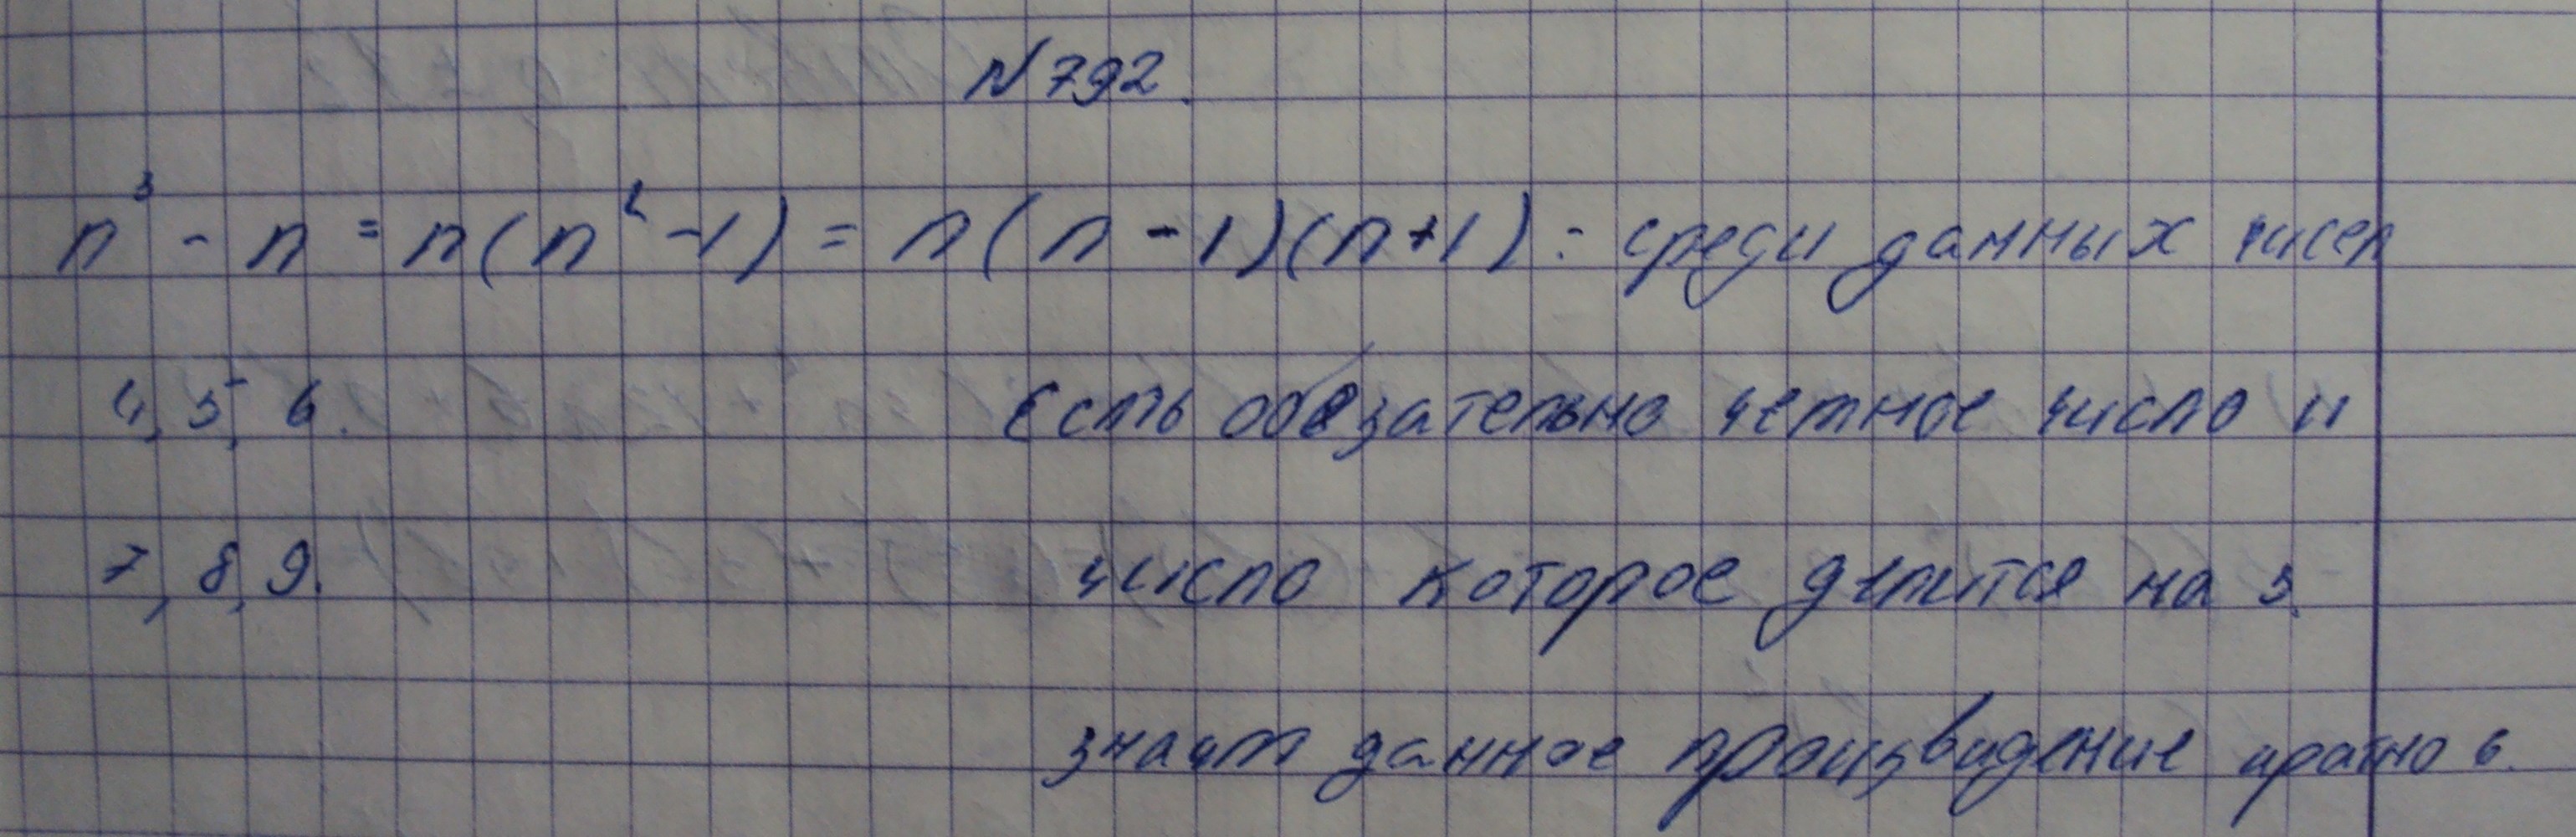 N 792.
n³ - n = n(n² - 1) = n(n - 1)(n + 1) - среди данных чисел
4, 5, 6. Есть обезательно четное число и
7, 8, 9. число которое делится на 3.
значт данное произвидение кратно 6.